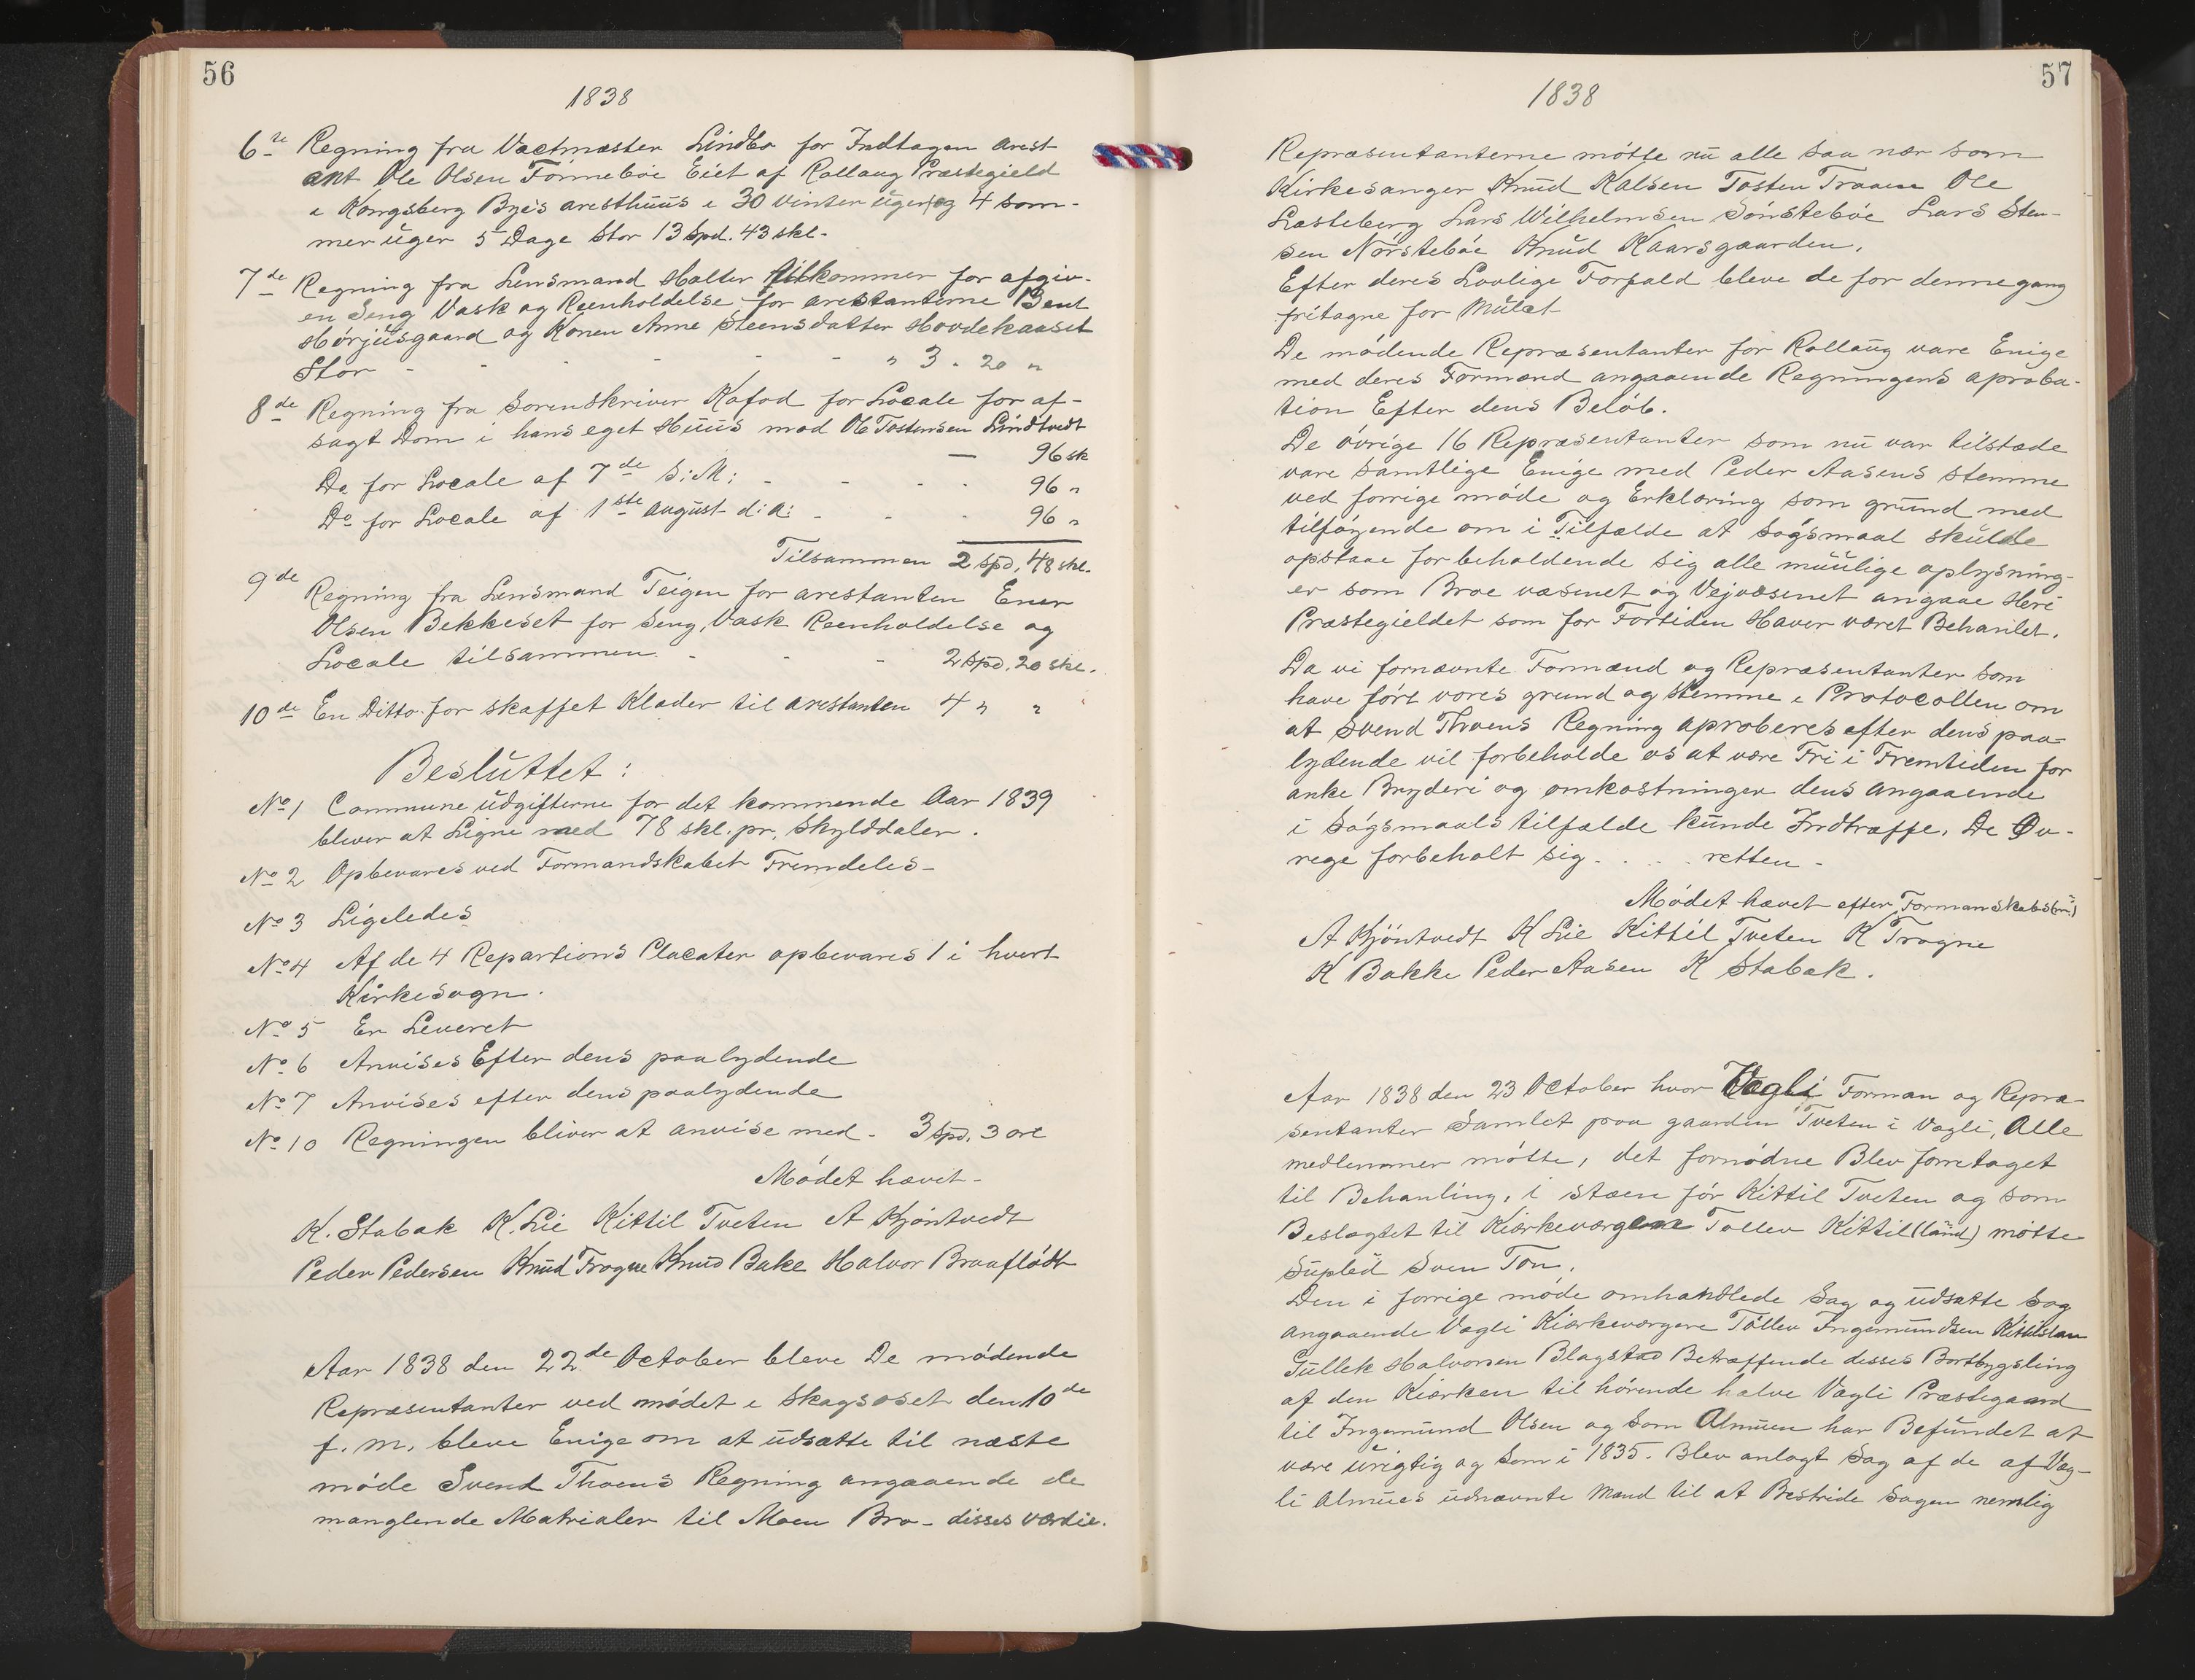 56
1838
6te Regning fra Vactmæster Lindbo for Indtagen arest
ant Ole Olsen Fønnebøe Eiet af Rollaug Præstegield
i Kongsberg Byes aresthuus i 30 vinter uger og 4 som-
mer uger 5 Dage Stor 13 Spd. 43 skl.
7de Regning fra Lensmand Halter tilkommer for afgiv-
en Seng Vask og Reenholdelse for arestanterne Bent
Hørjusgaard og Konen Anne Steensdatter Hovdekaaset
Stor - - - - - " 3 . 20 "
8de Regning fra Sorenskriver Kofod for Locale for af-
sagt Dom i hans eget Huus mod Ole Tostensen Lindtvedt
— 96 sk
Do for Locale af 7de S: M: - - - - 96 "
Do for Locale af 1ste august d: A: - - - 96 "
Tilsammen 2 Spd. 48 skl.
9de Regning fra Lensmand Teigen for arestanten Ener
Olsen Bekkeset for Seng, Vask Reenholdelse og
Locale tilsammen - - - 2 Spd. 20 skl.
10de En Ditto for skaffet Klader til arestanten 4 " "
Besluttet:
No 1 Commune udgifterne for det kommende Aar 1839
bliver at Ligne med 78 skl. pr. Skylddaler.
No 2 Opbevares ved Formandskabet Fremdeles-
No 3 Ligeledes
No 4 Af de 4 Repartions Placater opbevares 1 i hvert
Kirkesogn.
No 5 Er Leveret
No 6 Anvises Efter dens paalydende
No 7 Anvises efter dens paalydende
No 10 Regningen bliver at anvise med - 3 Spd. 3 ort
Mødet hævet-
K. Stabak K. Lie Kittil Tveten A Kjøntvedt
Peder Pedersen Knud Frogne Knud Bake Halvor Braaflødt
Aar 1838 den 22de October bleve De mødende
Repræsentanter ved mødet i Skagsoset den 10de
f. m. bleve Enige om at udsætte til næste
møde Svend Thoens Regning angaaende de
manglende Matrialer til Moen Bro- disses værdie.
57
1838
Repræsentanterne møtte nu alle saa nær som
Kirkesanger Knud Kalsen Tosten Traaen Ole
Læsteberg Lars Wilhelmsen Sønstebøe Lars Sten-
sen Nørstebøe Knud Kaarsgaarden.
Efter deres Lovlige Forfald bleve de for denne gang
fritagne for Mulct
De mødende Repræsentanter for Rollaug vare Enige
med deres Formænd angaaende Regningens aproba-
tion Efter dens Beløb.
De øvrige 16 Repræsentanter som nu var tilstæde
vare samtlige Enige med Peder Aasens stemme
ved forrige møde og Erklæring som grund med
tilføyende om i Tilfælde at søgsmaal skulde
opstaae forbeholdende sig alle muulige oplysning-
er som Broe væsenet og Vejvæsenet angaae Heri
Præstegieldet som for Fortiden Haver været Behanlet.
Da vi fornævnte Formænd og Repræsentanter som
have ført vores grund og Stemme i Protocollen om
at Svend Thoens Regning aproberes efter dens paa-
lydende vil forbeholde os at være Fri i Fremtiden for
anke Bryderi og omkostninger dens angaaende
i søgsmaals tilfælde kunde Indtræffe. De Øv-
rege forbeholt sig . . . . retten -
Mødet hævet efter Formanskabs(m)
A Kjøntvedt K Lie Kittil Tveten K Frogne
K Bakke Peder Aasen K Stabak.
Aar 1838 den 23 October hvor Vægli Forman og Repræ-
sentanter Samlet paa gaarden Tveten i Vægli, Alle
medlemmer møtte, det fornødne Blev forretaget
til Behanling, i stæen før Kittil Tveten og som
Beslægtet til Kiærkeværgene Tollev Kittil(land) møtte
Supled Sven Ton.
Den i forrige møde omhandlede Sag og udsatte Sag
angaaende Vægli Kiærkeværgere Tollev Ingemundsen Kittilslan
Gullek Halvorsen Blagstad Betræffende disses Bortbygsling
af den Kiærken til hørende halve Vægli Præstegaard
til Ingemund Olsen og som Almuen har Befundet at
være urigtig og som i 1835. Blev anlagt Sag af de af Væg-
li Almues udnævnte Mænd til at Bestride Sagen nemlig